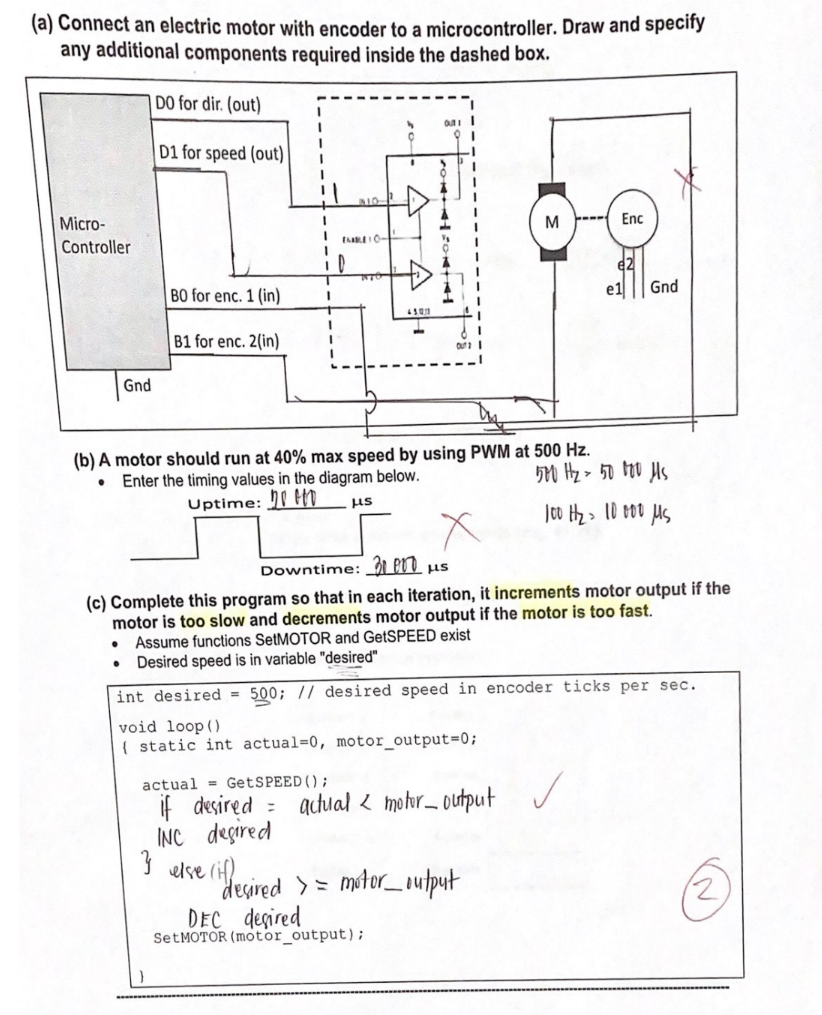 (a) Connect an electric motor with encoder to a microcontroller. Draw and specify
any additional components required inside the dashed box.
D0 for dir. (out)
OUT 1
D1 for speed (out)
1
Micro-
Controller
M
Enc
ENABLE 1
0
e2
e1
Gnd
B0 for enc. 1 (in)
B1 for enc. 2(in)
OUT 2
Gnd
(b) A motor should run at 40% max speed by using PWM at 500 Hz.
• Enter the timing values in the diagram below.
500 Hz = 50 000 μs
Uptime: 20 000 μs
100 Hz = 10 000 μs
Downtime: 30 000 μs
(c) Complete this program so that in each iteration, it increments motor output if the
motor is too slow and decrements motor output if the motor is too fast.
• Assume functions SetMOTOR and GetSPEED exist
• Desired speed is in variable "desired"
int desired = 500; // desired speed in encoder ticks per sec.
void loop()
{ static int actual=0, motor_output=0;
actual = GetSPEED();
if desired = actual < motor_output
INC desired
} else (if)
desired >= motor_output
2
DEC desired
SetMOTOR(motor_output);
}